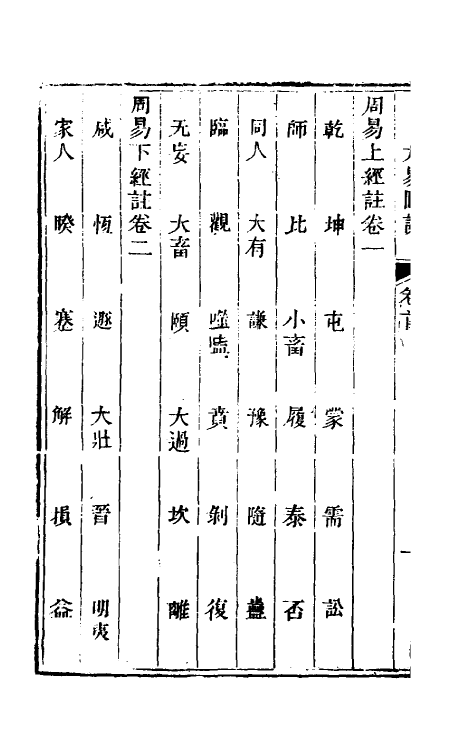 周易上經註卷一
乾 坤 屯 蒙 需 訟
師 比 小畜 履 泰 否
同人 大有 謙 豫 隨 蠱
臨 觀 噬嗑 賁 剝 復
无妄 大畜 頤 大過 坎 離
周易下經註卷二
咸 恆 遯 大壯 晉 明夷
家人 睽 蹇 解 損 益